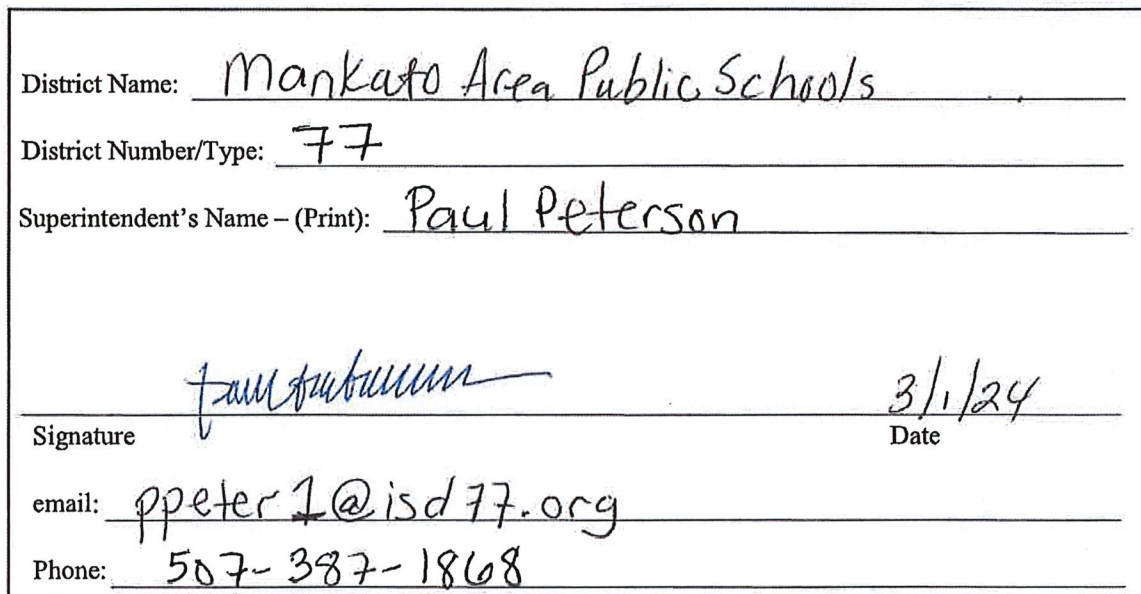 District Name: Mankato Area Public Schools
District Number/Type: 77
Superintendent's Name – (Print): Paul Peterson
3/1/24
Signature Date
email: ppeter1@isd77.org
Phone: 507-387-1868